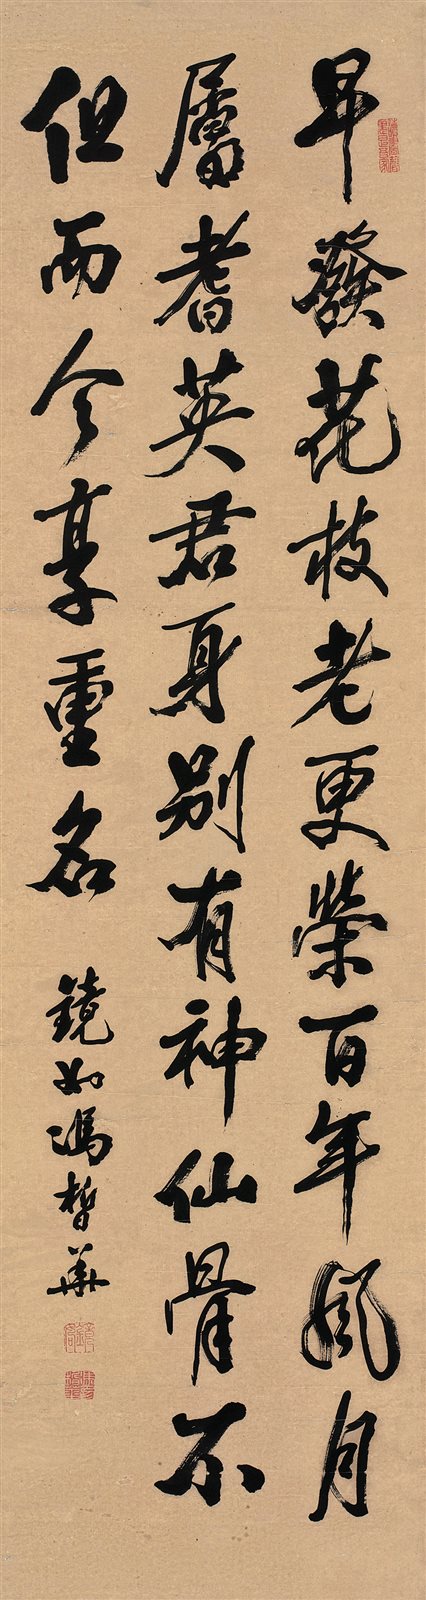 早發花枝老更榮百年風月
屬耆英君身別有神仙骨不
但而今享重名
鏡如馮晳華